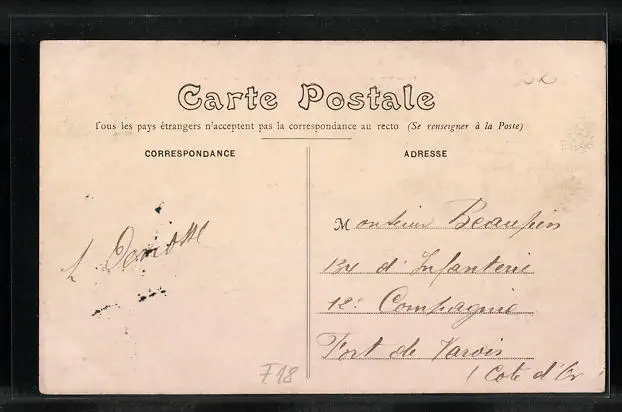 Carte Postale
Tous les pays étrangers n'acceptent pas la correspondance au recto (Se renseigner à la Poste)
CORRESPONDANCE
ADRESSE
Monsieur Beaupin
134 d'Infanterie
12e Compagnie
Fort de Varois
(Cote d'Or)
F18